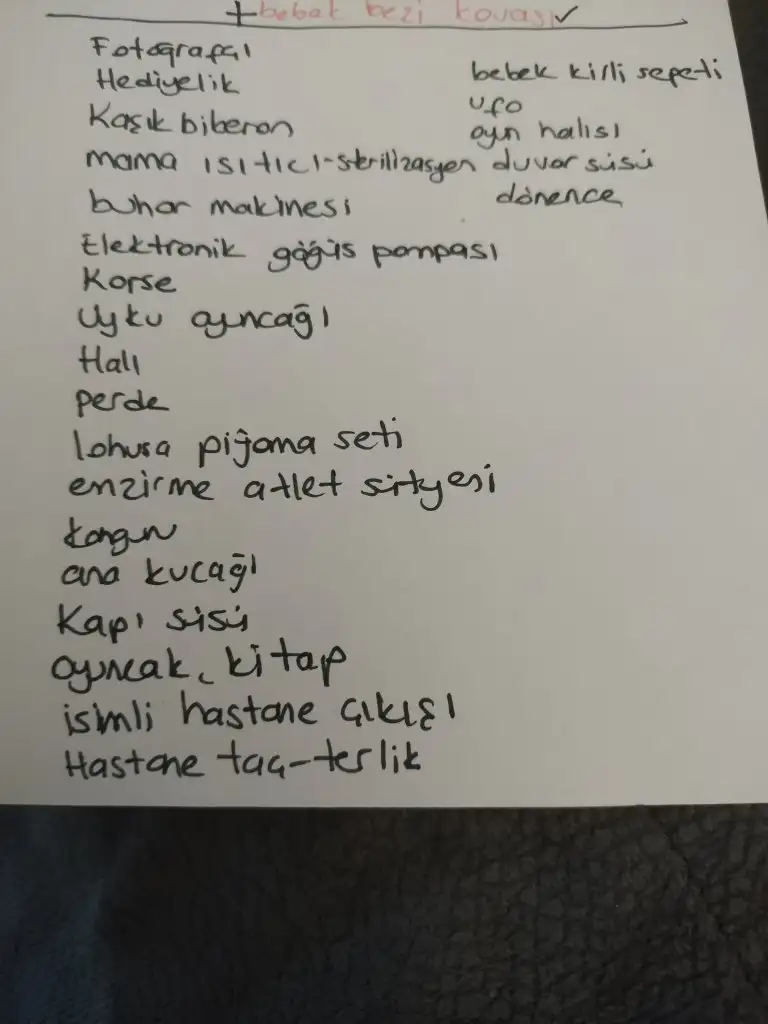 +bebek bezi kovası✓
Fotoğrafçı
Hediyelik
Kaşık biberon
mama ısıtıcı-sterilizasyon
buhar makinesi
Elektronik göğüs pompası
Korse
Uyku oyuncağı
Halı
perde
lohusa pijama seti
enzirme atlet sütyesi
ana kucağı
Kapı süsü
oyuncak, kitap
isimli hastane çıkışı
Hastane taç-terlik
bebek kirli sepeti
ufo
oyun halısı
duvar süsü
dönence